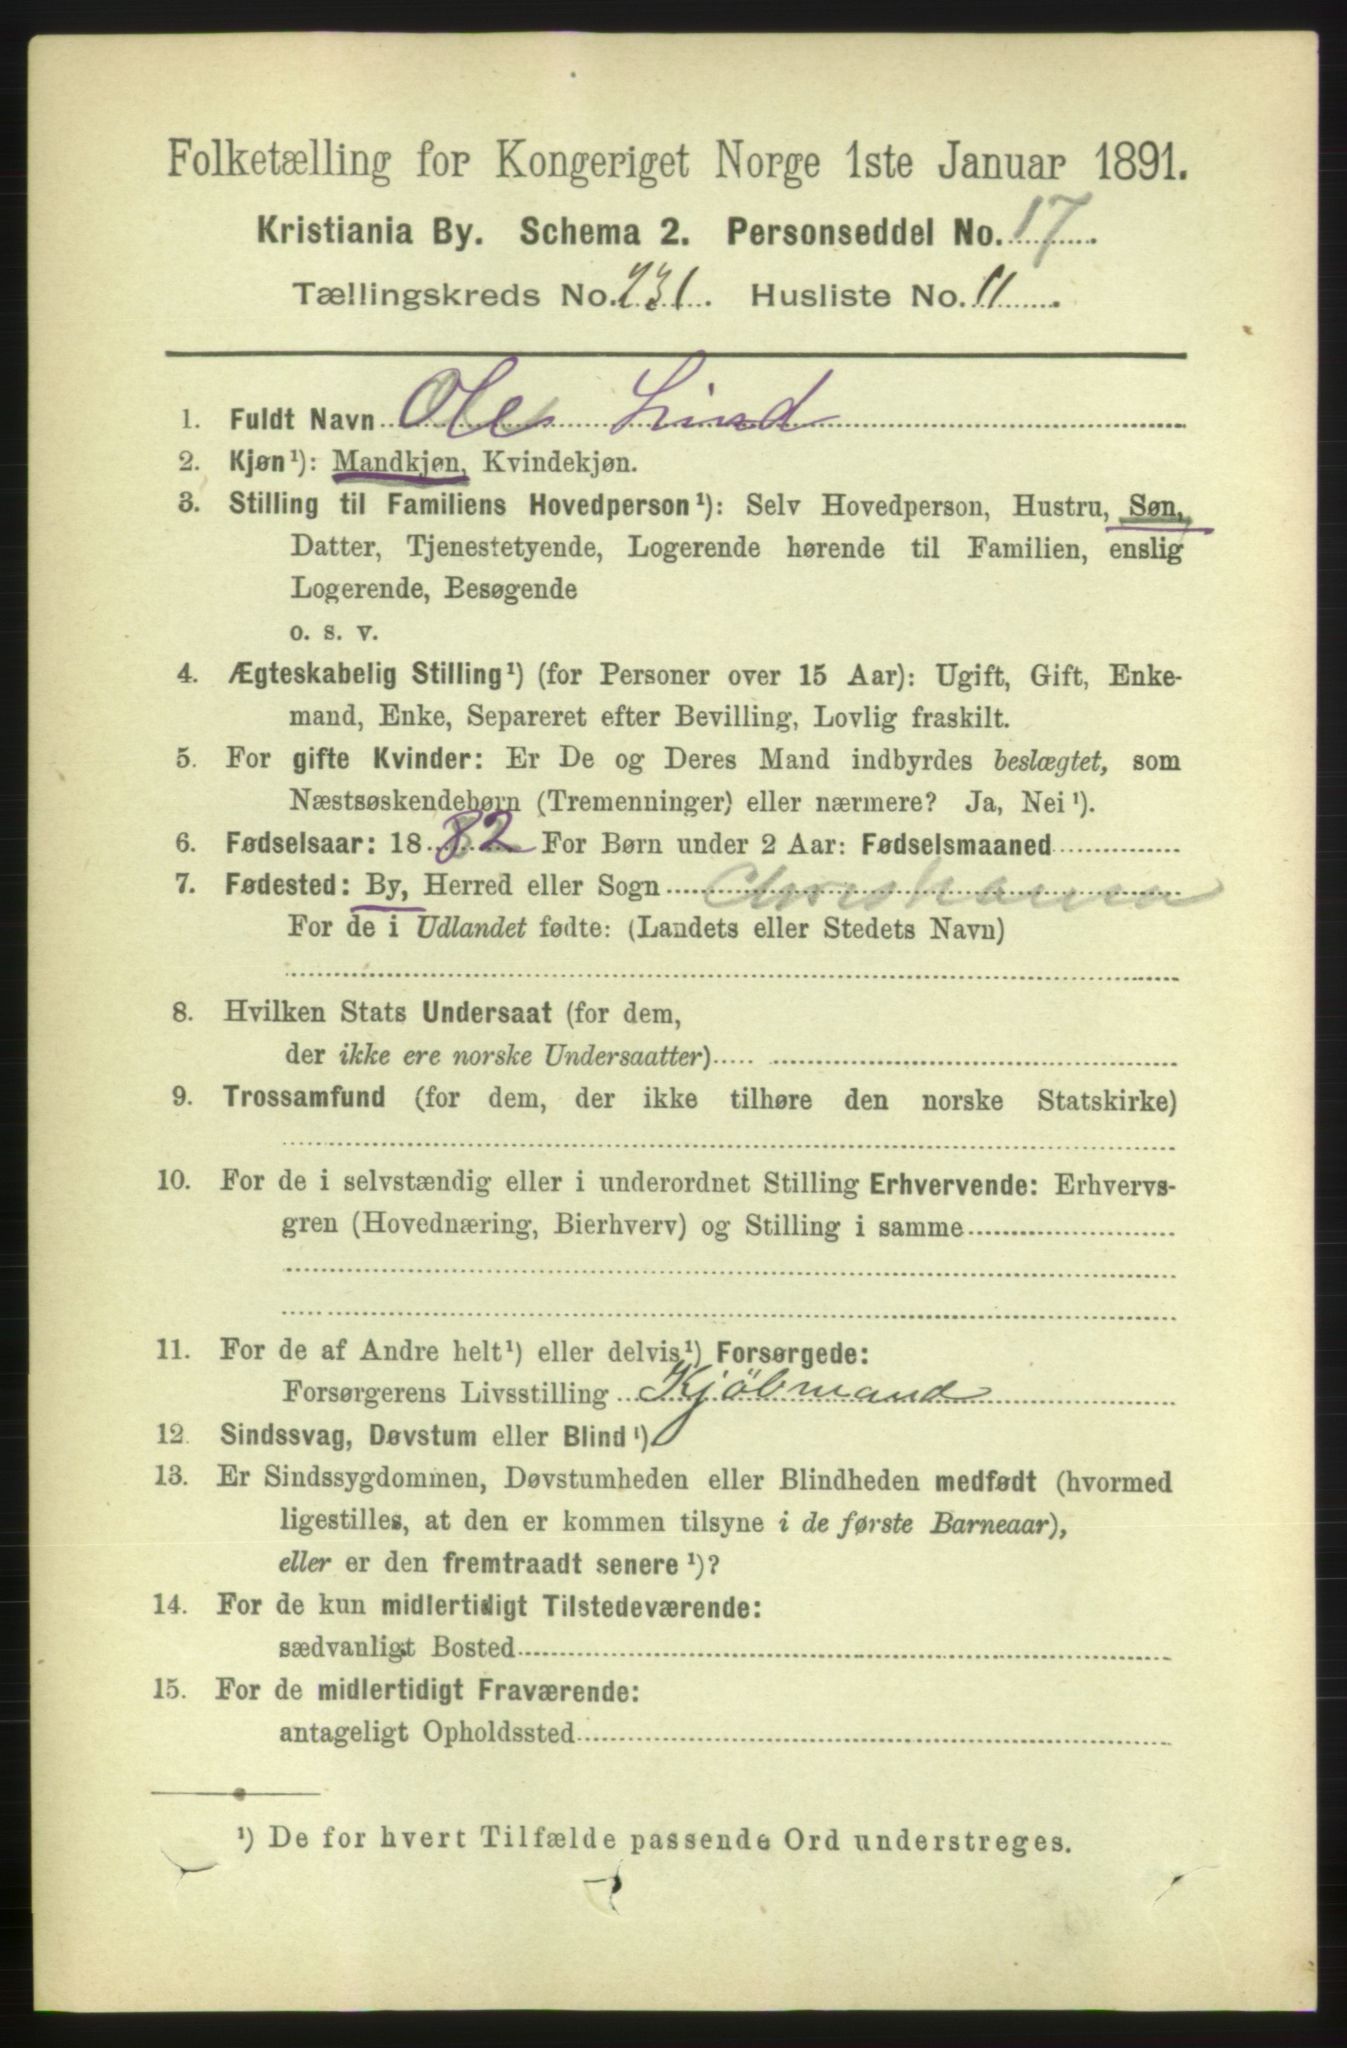 Folketælling for Kongeriget Norge 1ste Januar 1891.
Kristiania By. Schema 2. Personseddel No. 17
Tællingskreds No. 231. Husliste No. 11
1. Fuldt Navn Ole Lind
2. Kjøn¹): Mandkjøn, Kvindekjøn.
3. Stilling til Familiens Hovedperson¹): Selv Hovedperson, Hustru, Søn,
Datter, Tjenestetyende, Logerende hørende til Familien, enslig
Logerende, Besøgende
o. s. v.
4. Ægteskabelig Stilling¹) (for Personer over 15 Aar): Ugift, Gift, Enke-
mand, Enke, Separeret efter Bevilling, Lovlig fraskilt.
5. For gifte Kvinder: Er De og Deres Mand indbyrdes beslægtet, som
Næstsøskendebørn (Tremenninger) eller nærmere? Ja, Nei¹).
6. Fødselsaar: 1882 For Børn under 2 Aar: Fødselsmaaned
7. Fødested: By, Herred eller Sogn Christiania
For de i Udlandet fødte: (Landets eller Stedets Navn)
8. Hvilken Stats Undersaat (for dem,
der ikke ere norske Undersaatter)
9. Trossamfund (for dem, der ikke tilhøre den norske Statskirke)
10. For de i selvstændig eller i underordnet Stilling Erhvervende: Erhvervs-
gren (Hovednæring, Bierhverv) og Stilling i samme
11. For de af Andre helt¹) eller delvis¹) Forsørgede:
Forsørgerens Livsstilling Kjöbmand
12. Sindssvag, Døvstum eller Blind¹).
13. Er Sindssygdommen, Døvstumheden eller Blindheden medfødt (hvormed
ligestilles, at den er kommen tilsyne i de første Barneaar),
eller er den fremtraadt senere¹)?
14. For de kun midlertidigt Tilstedeværende:
sædvanligt Bosted
15. For de midlertidigt Fraværende:
antageligt Opholdssted
¹) De for hvert Tilfælde passende Ord understreges.